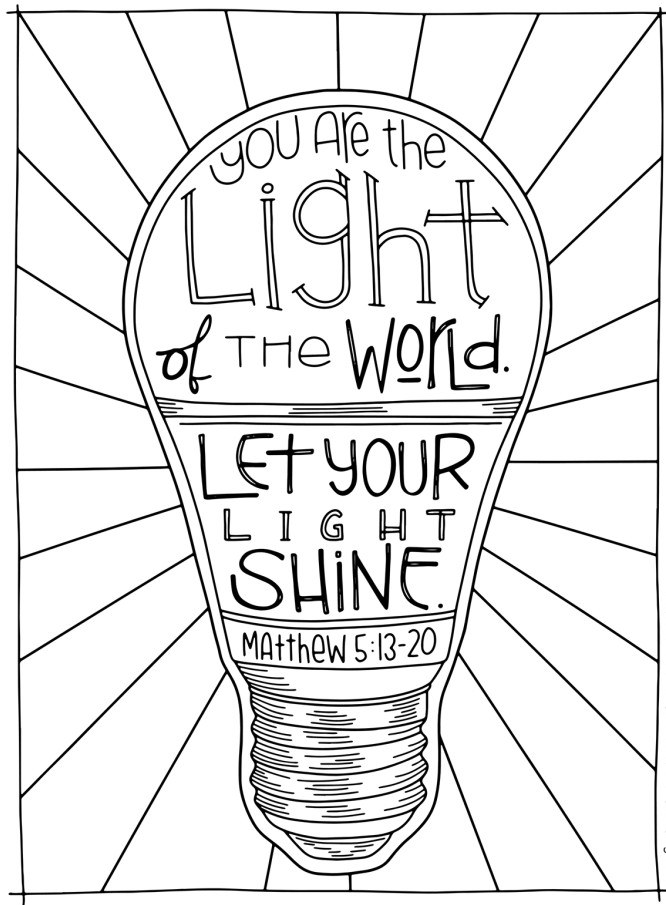 you Are the
Light
of THe WorLd.
LEt yOUR
LIGHT
SHiNE.
MAttheW 5:13-20